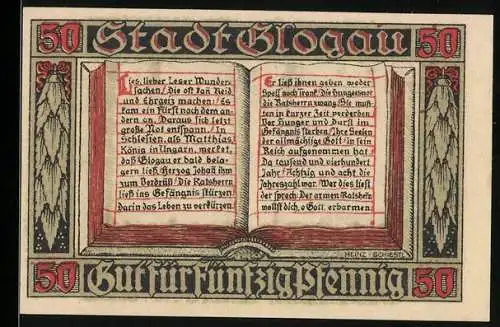 50 Stadt Glogau 50
Lies, lieber Leser Wunder-
sachen/ Die oft kan Neid
und Ehrgeiz machen/ Es
kam ein Fürst nach dem an-
dern an. Daraus sich letzt
große Not entspann/ In
Schlesien, als Matthias
König in Ungarn, merckt,
daß Glogau er bald bela-
gern ließ, Herzog Johañ ihm
zum Verdrüß/ Die Ratsherrn
ließ ins Gefängnis stürzen,
darin das Leben zu verkürzen.
Er ließ ihnen geben weder
Speis noch Trank/ die Hungersnot
die Ratsherrn zwang/ Sie muß-
ten in kurzer Zeit verderben
Vor Hunger und Durst im
Gefängnis sterben/ Ihre Seelen
der allmächtige Gott/ in sein
Reich aufgenommen hat
Da tausend und vierhundert
Jahr/ Achtzig und acht die
Jahreszahl war. Wer dies liest
der sprech: Der armen Ratsherrn
wollst dich, o Gott, erbarmen.
HEINZ SCHIESTL
50 Gut für Fünfzig Pfennig 50